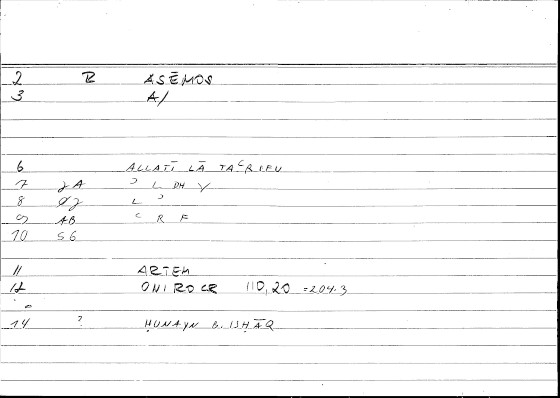 2 R ASĒMOS
3 A/
6 ALLATĪ LĀ TAʿRIFU
7 JA ʾ L DH Y
8 ØJ L ʾ
9 AB ʿ R F
10 56
11 ARTEM
12 ONIROCR 110,20 = 204.3
14 ? ḤUNAYN B. ISḤĀQ